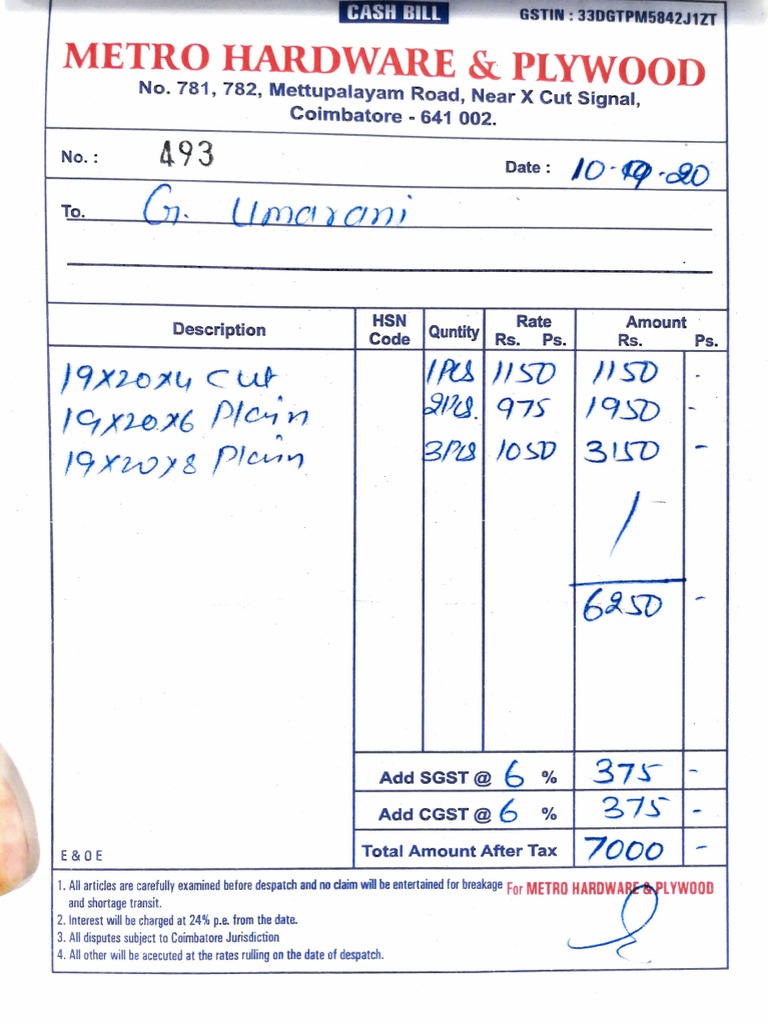 CASH BILL GSTIN : 33DGTPM5842J1ZT
METRO HARDWARE & PLYWOOD
No. 781, 782, Mettupalayam Road, Near X Cut Signal,
Coimbatore - 641 002.
No. : 493 Date : 10-09-20
To. G. Umarani
Description HSN Code Quntity Rate Rs. Ps. Amount Rs. Ps.
19x20x4 Cut 1Pcs 1150 1150 -
19x20x6 Plain 2Pcs. 975 1950 -
19x20x8 Plain 3Pcs 1050 3150 -
6250 -
Add SGST @ 6 % 375 -
Add CGST @ 6 % 375 -
E & O E Total Amount After Tax 7000 -
1. All articles are carefully examined before despatch and no claim will be entertained for breakage
and shortage transit.
For METRO HARDWARE & PLYWOOD
2. Interest will be charged at 24% p.e. from the date.
3. All disputes subject to Coimbatore Jurisdiction
4. All other will be acecuted at the rates rulling on the date of despatch.